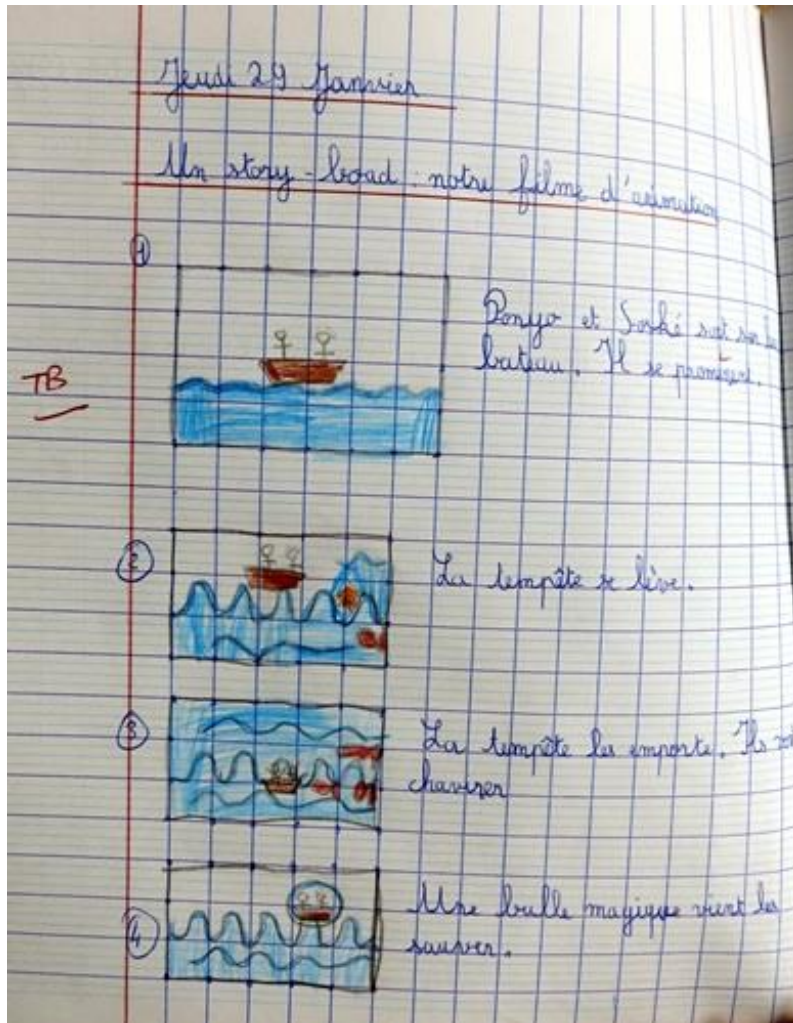 Jeudi 29 Janvier
Un story-boad : notre filme d'animation
1
Ponyo et Soské sont sur le
bateau. Il se promènent.
TB
2
La tempête se lève.
3
La tempête les emporte. Ils
chavirer
4
Une bulle magique vient les
sauver.